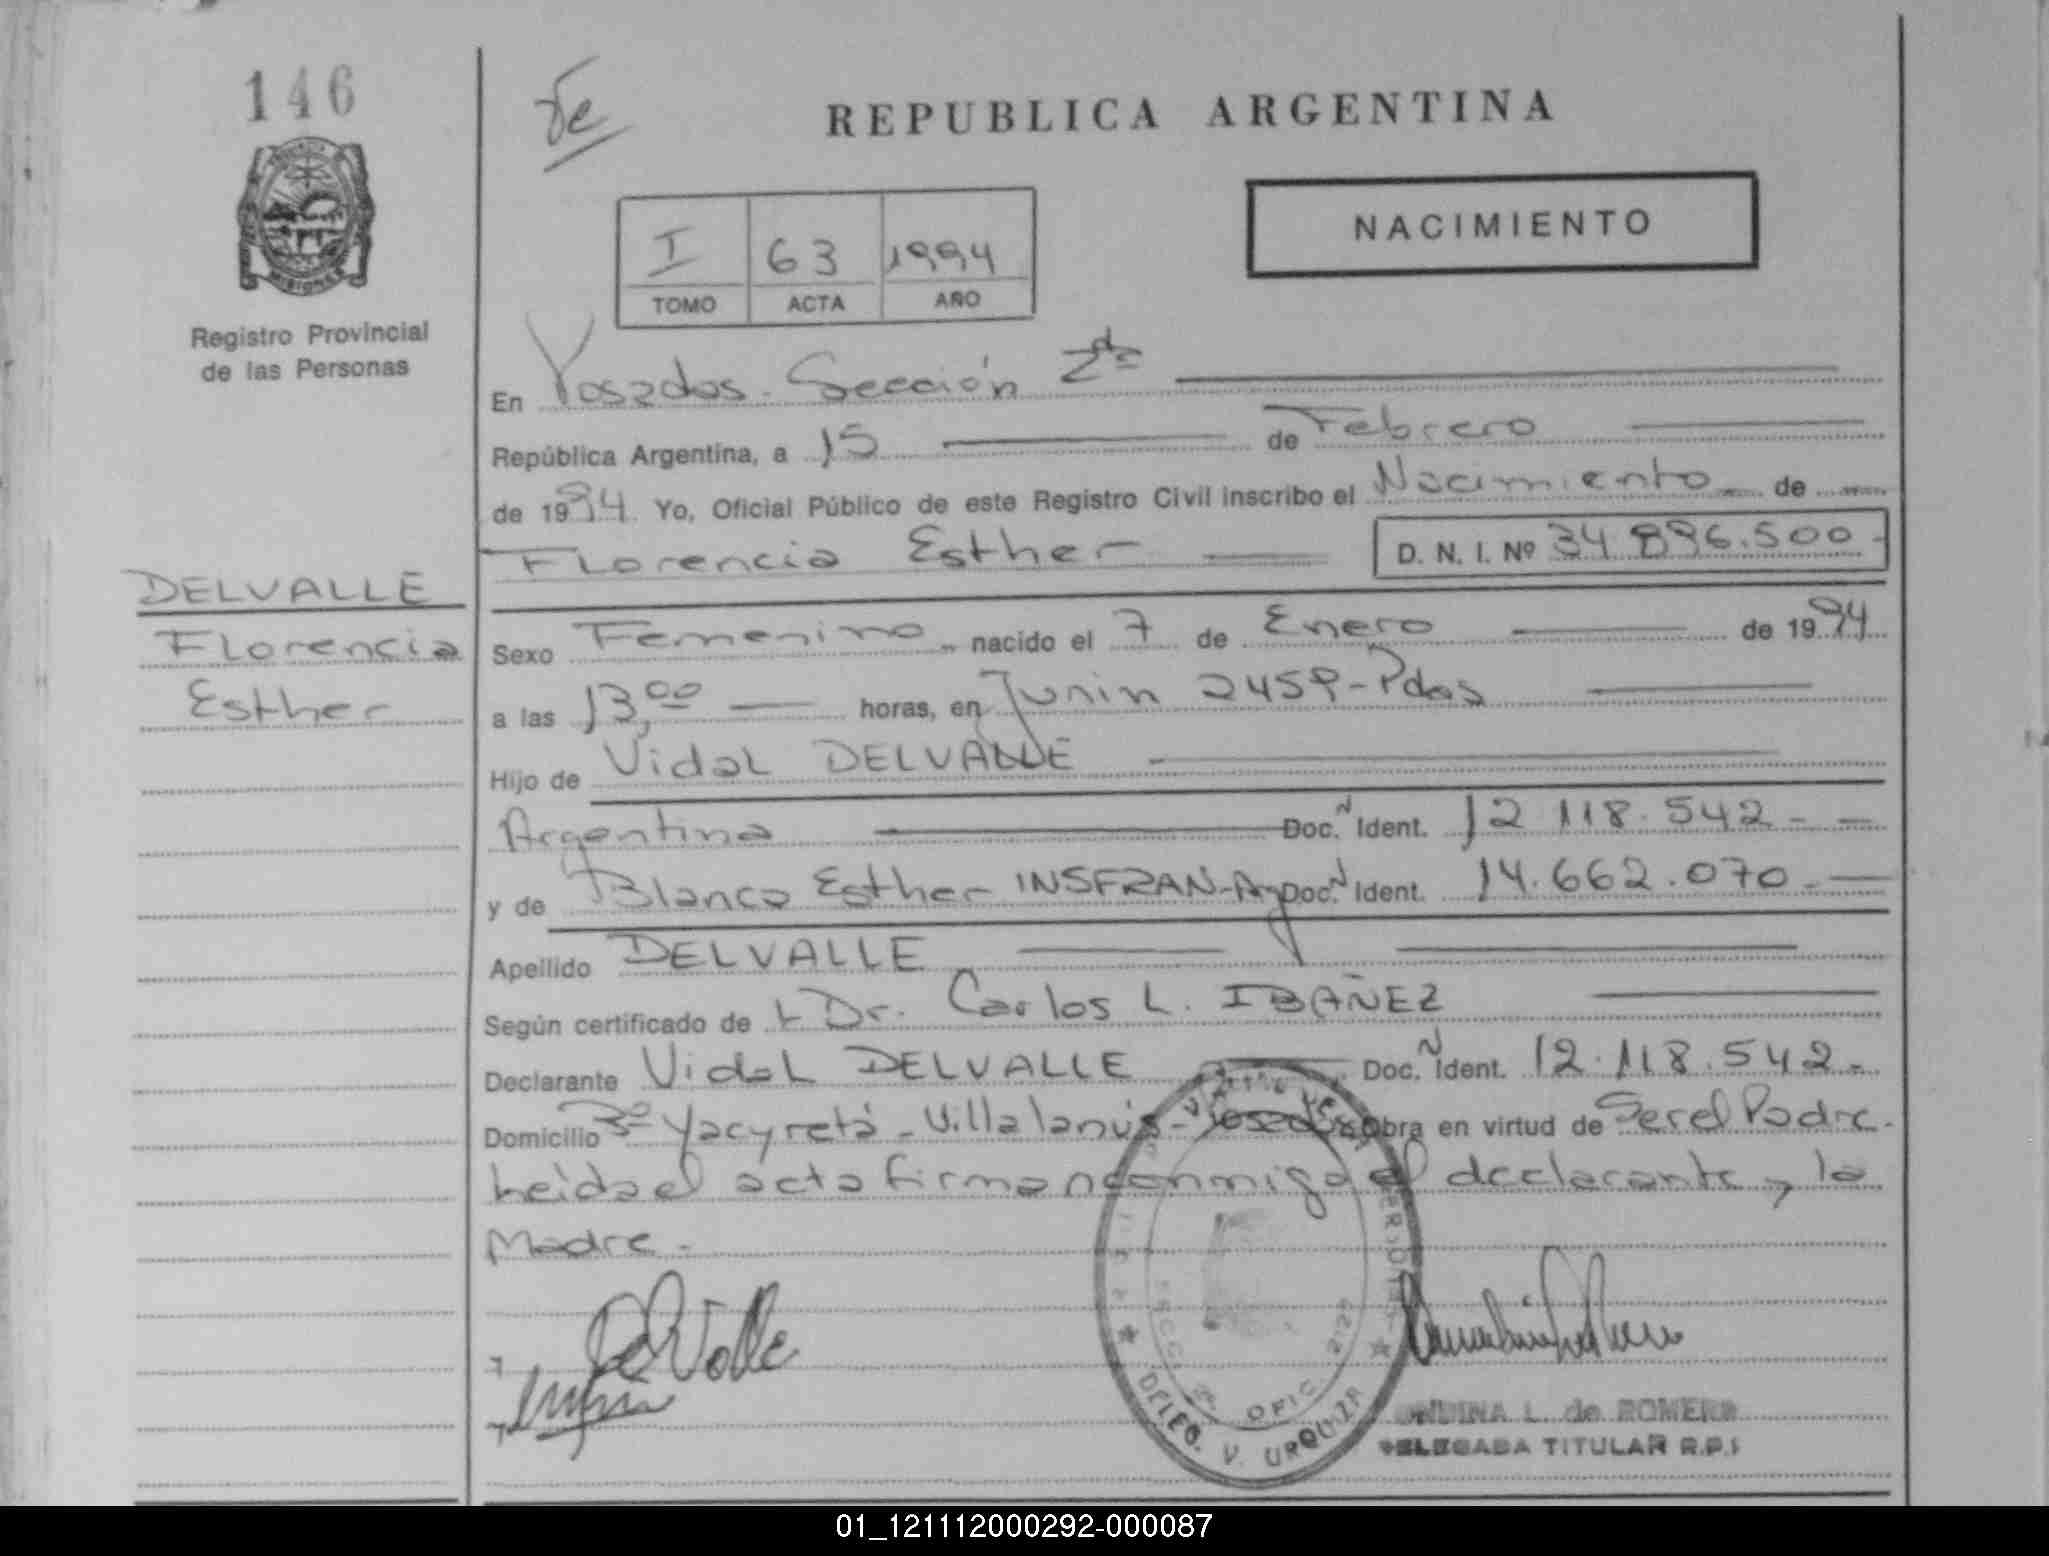 146
REPUBLICA ARGENTINA
NACIMIENTO
I 63 1994
TOMO ACTA AÑO
Registro Provincial
de las Personas
En Posadas - Sección 2da
República Argentina, a 15 de Febrero
de 1994 Yo, Oficial Público de este Registro Civil inscribo el Nacimiento de
Florencia Esther D. N. I. Nº 34.896.500-
DELVALLE
Florencia
Esther
Sexo Femenino nacido el 7 de Enero de 1994
a las 13,00 horas, en Junin 2459-Pdas
Hijo de Vidal DELVALLE
Argentino Doc. N Ident. 12.118.542-
y de Blanca Esther INSFRAN-Arg Doc. N Ident. 14.662.070-
Apellido DELVALLE
Según certificado de Dr. Carlos L. IBAÑEZ
Declarante Vidal DELVALLE Doc. N Ident. 12.118.542-
Domicilio Bº Yacyretá - Villalanús - Posadas Obra en virtud de Ser el Padre.
Leída el acta firman conmigo el declarante y la
Madre -
DelValle
DELEG. V. URQUIZA
SECC. OFIC.
ONDINA L. de ROMERO
DELEGADA TITULAR R.P.
01_121112000292-000087